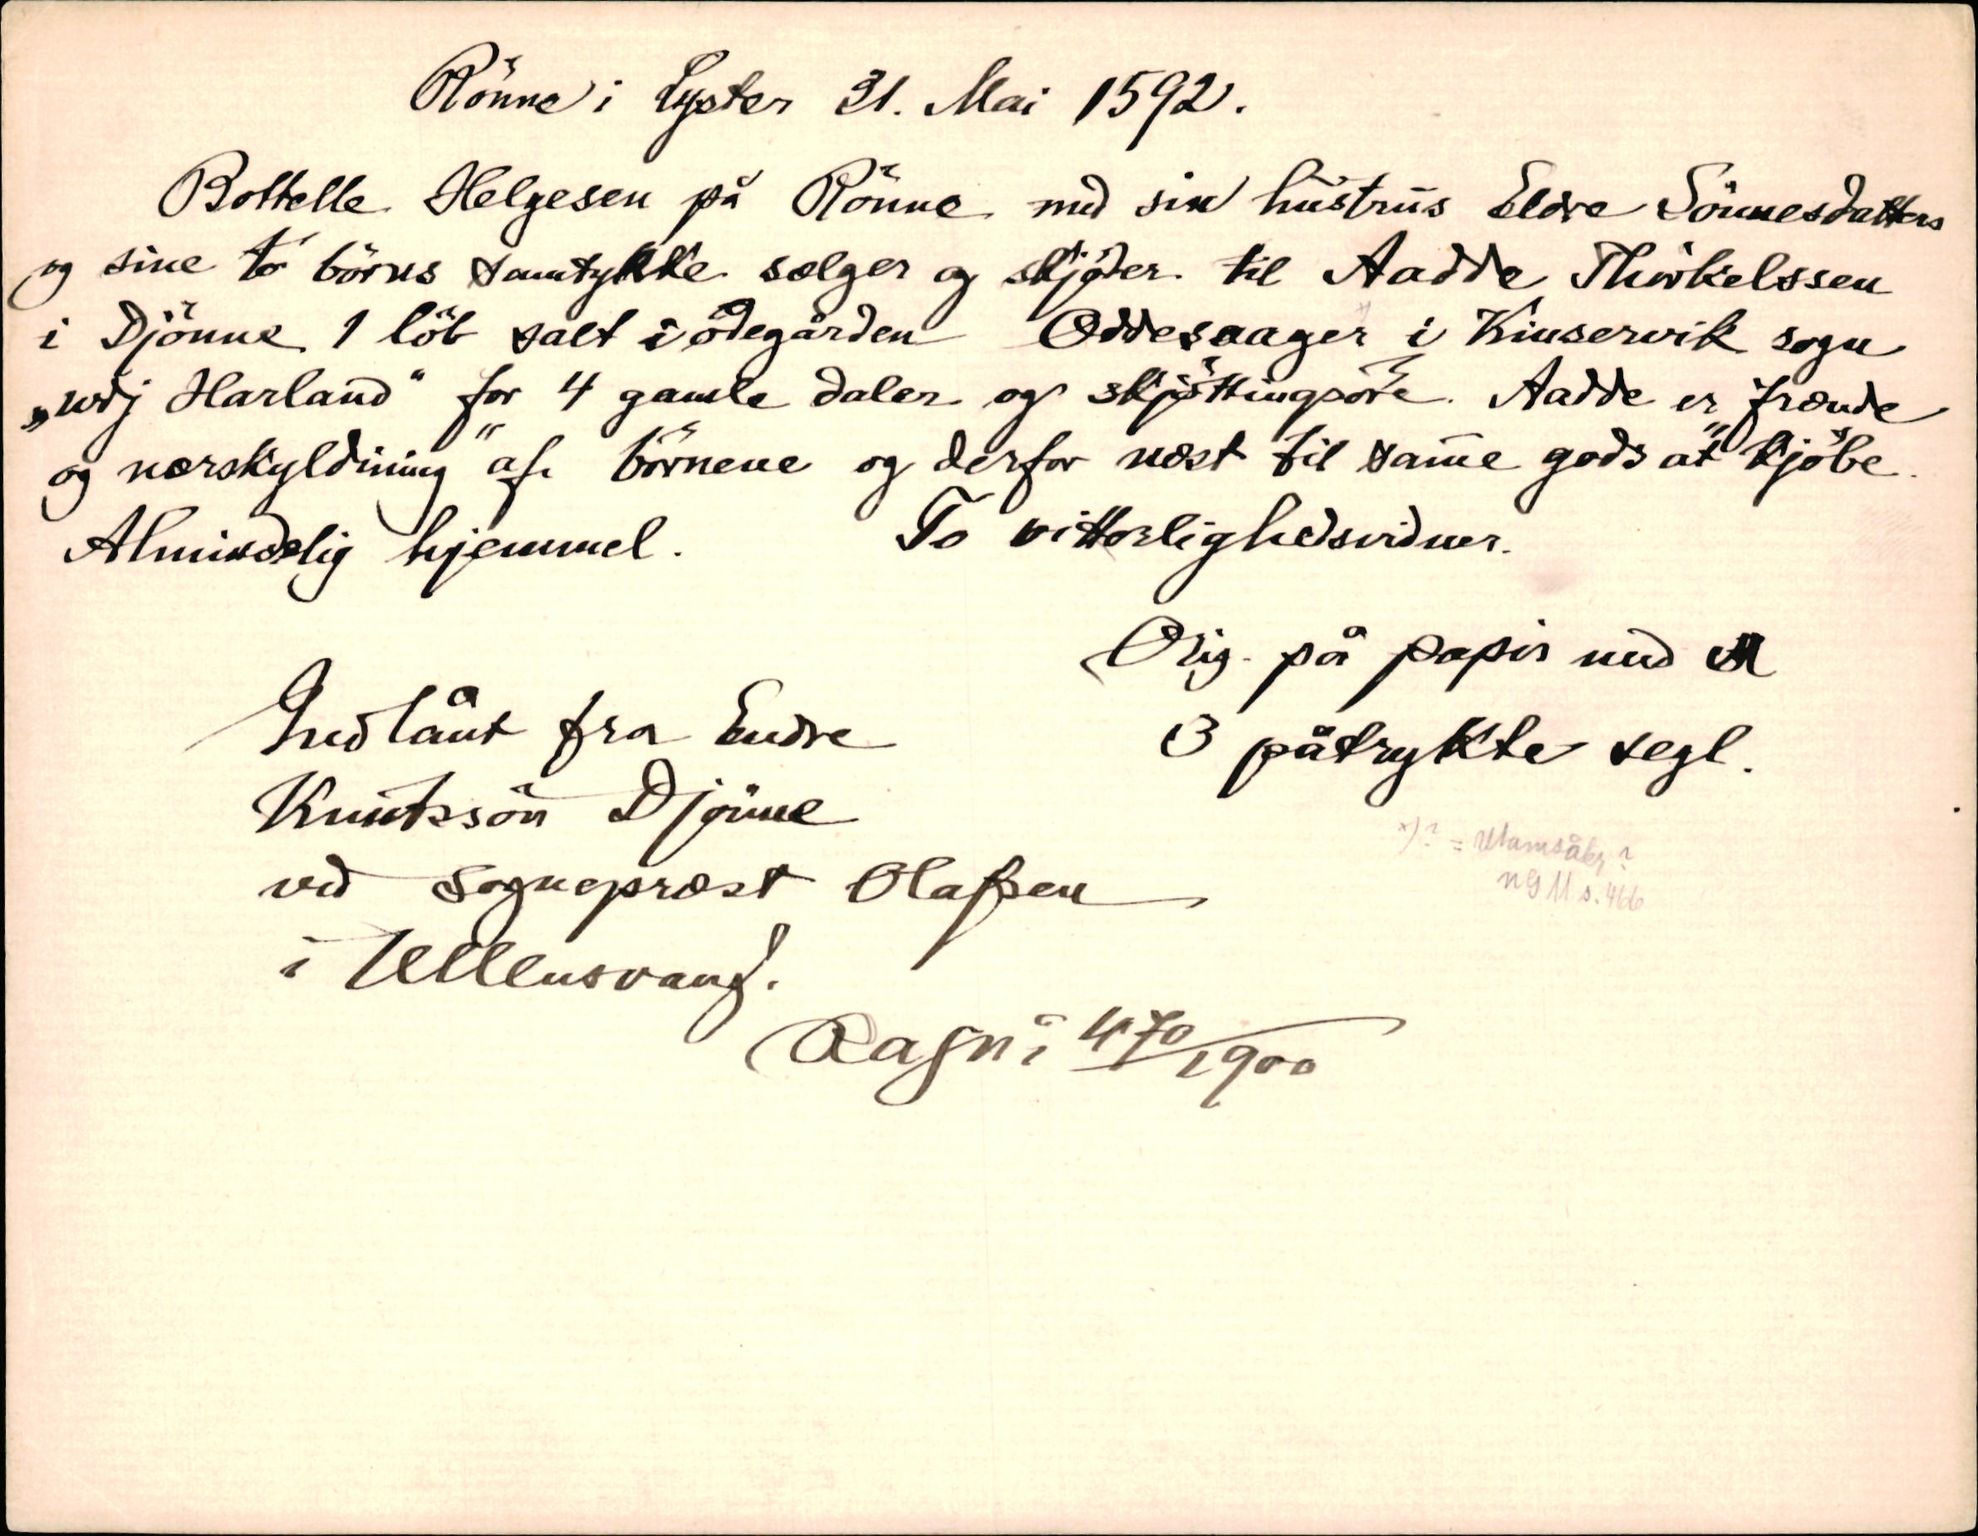 Rönne i Lyster 31. Mai 1592.
Bottelle Helgesen på Rönne med sin hustrus Eldre Sönnesdatters
og sine to börns samtykke sælger og skjöder til Aadde Thirkelssen
i Djönne 1 löb salt i ödegården Oddesaager i Kinservik sogn
„udj Harland" for 4 gamle daler og skjöttingsöre. Aadde er „frænde
og nærskyldining" af börnene og derfor næst til samme gods at kjöbe.
Almindelig hjemmel. To vitterlighedsvidner.
Orig. på papir med
3 påtrykte segl.
Indlånt fra Endre
Knutssön Djönne
ved sogneprest Olafsen
i Ullensvang.
x) ? = Utamsåkr?
NG XI s. 466
470/1900